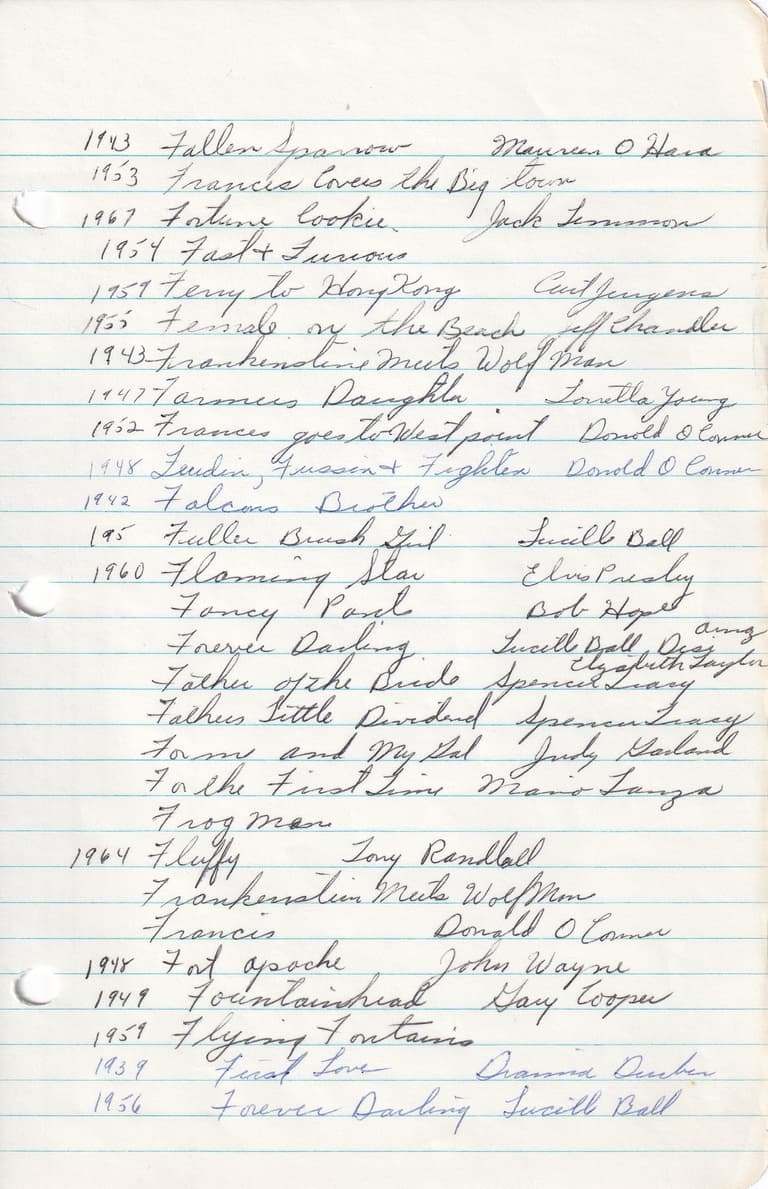 1943 Fallen Sparrow Maureen O Hara
1953 Frances Covers the Big town
1967 Fortune Cookie. Jack Lemmon
1954 Fast + Furious
1959 Ferry to Hong Kong Curt Jurgens
1955 Female on the Beach Jeff Chandler
1943 Frankenstine Meets Wolf Man
1947 Farmers Daughter Lorretta Young
1952 Frances goes to West point Donold O Conner
1948 Feudin, Fussin + Fighten Donold O Conner
1942 Falcons Brother
195 Fuller Brush Girl Lucille Ball
1960 Flaming Star Elvis Presley
Fancy Pants Bob Hope
Forever Darling Lucille Ball Desi Arnaz
Father of the Bride Spencer Tracy Elizabeth Taylor
Fathers Little Dividend Spencer Tracy
Form and My Gal Judy Garland
For the First Time Mario Lanza
Frog Men
1964 Fluffy Tony Randball
Frankenstein Meets Wolf Man
Francis Donald O Conner
1948 Fort apache John Wayne
1949 Fountainhead Gary Cooper
1959 Flying Fontains
1939 First Love Deanna Durben
1956 Forever Darling Lucille Ball